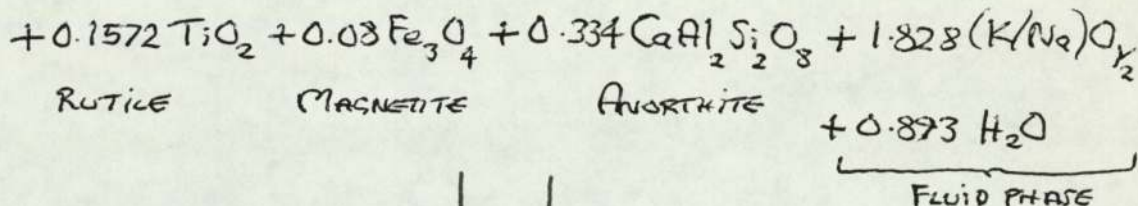 +0.1572 TiO₂ +0.08 Fe₃O₄ +0.334 CaAl₂Si₂O₈ + 1.828 (K/Na)O½
RUTILE MAGNETITE ANORTHITE
+0.893 H₂O
FLUID PHASE